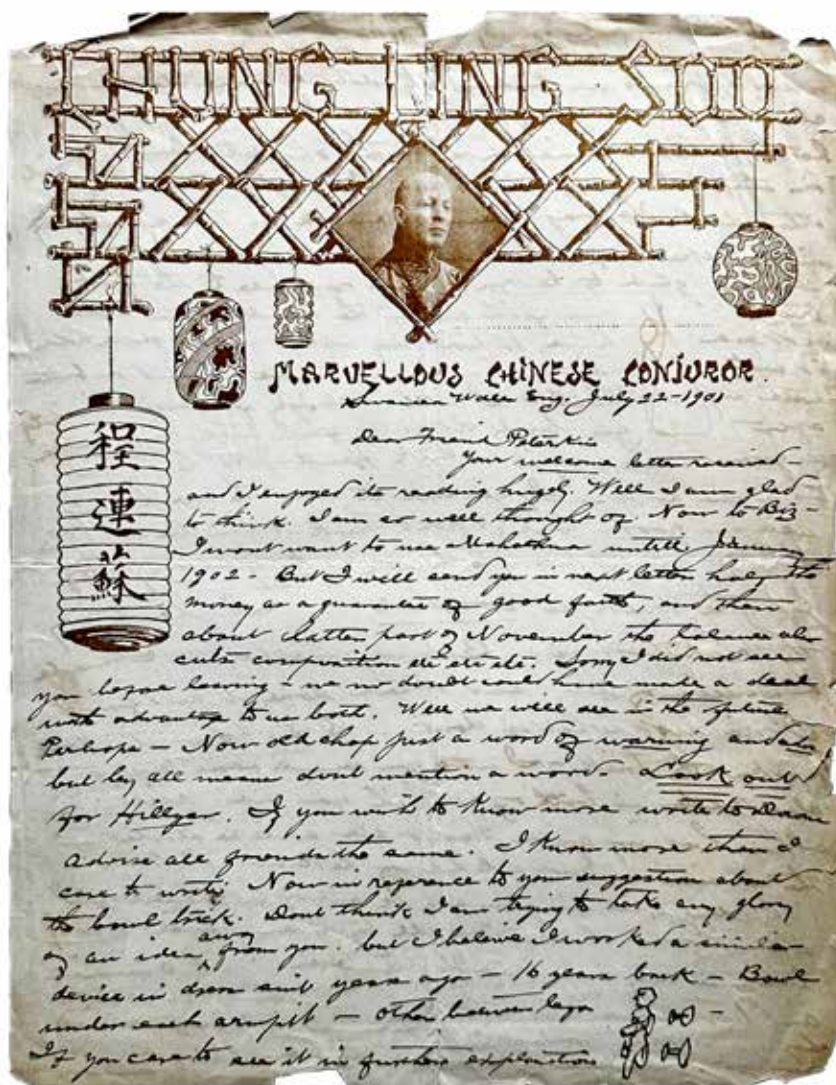 CHUNG LING SOO
MARVELLOUS CHINESE CONJUROR.
Swansea Wales Eng. July 22-1901
程
連
蘇
Dear Friend Peterkin
Your welcome letter received-
and I enjoyed its reading hugely. Well I am glad
to think. I am so well thought of. Now to Biz-
I wont want to use Mahatma untill January
1902 - But I will send you in next letter half the
money as a guarantee of good faith, and then
about latter part of November the balance also
cuts composition etc etc etc. Sorry I did not see
you before leaving - we no doubt could have made a deal
with advantage to us both. Well we will see in the future
Perhaps - Now old chap just a word of warning
but by all means dont mention a word. Look out
for Hillyar. If you wish to know more write to
advise all friends the same. I know more than I
care to write. Now in reference to your suggestion about
the bowl trick. Dont think I am trying to take any glory
of an idea away from you. but I believe I worked a similar
device in years ago - 16 years back - Bowl
under each armpit - other between legs -
If you care to see it in further explanations